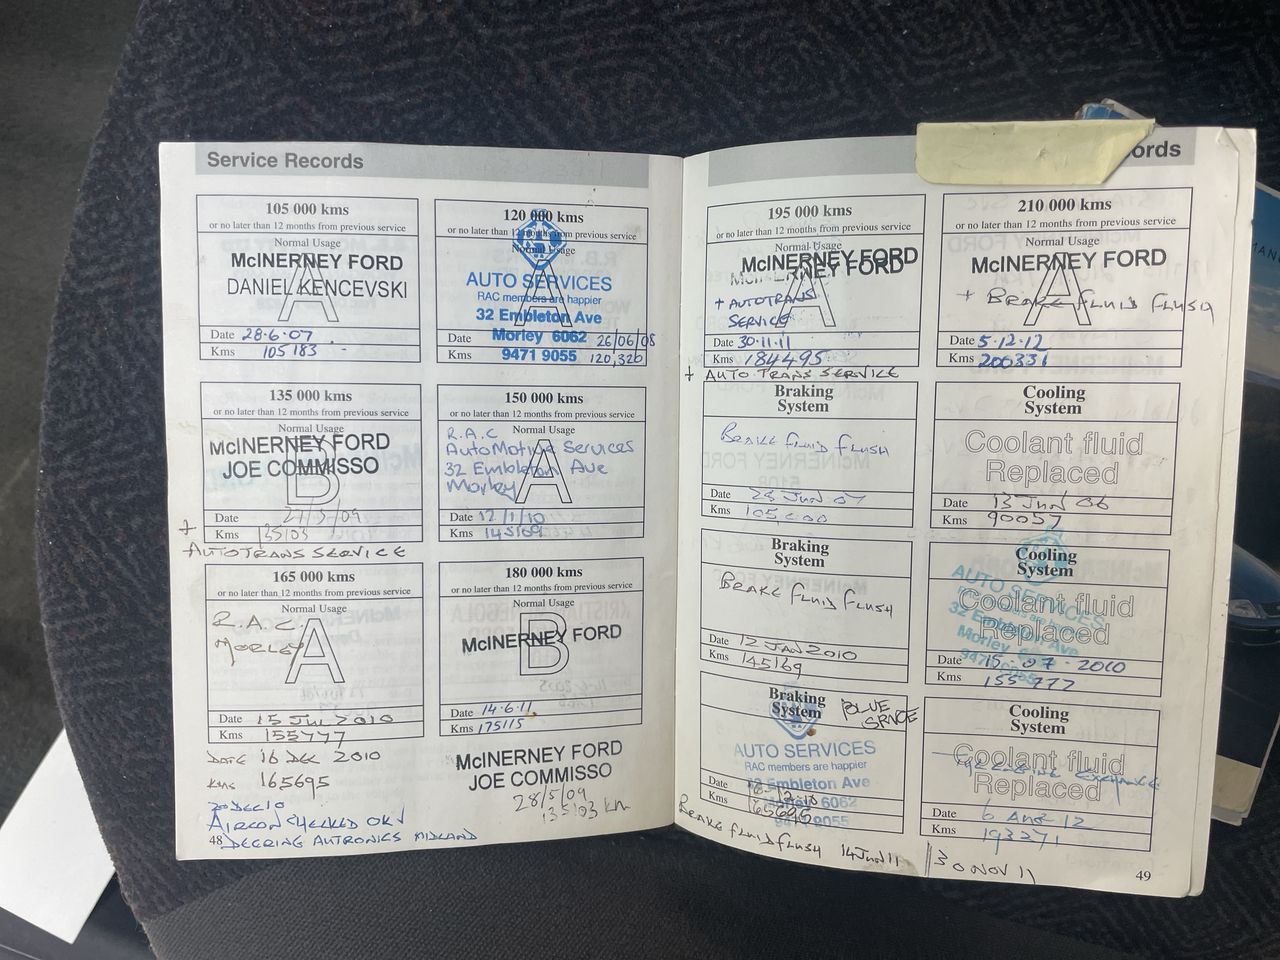 Service Records
105 000 kms
or no later than 12 months from previous service
Normal Usage
A
McINERNEY FORD
DANIEL KENCEVSKI
Date 28·6·07
Kms 105183
120 000 kms
or no later than 12 months from previous service
Normal Usage
A
AUTO SERVICES
RAC members are happier
32 Embleton Ave
Morley 6062
9471 9055
Date 26/06/08
Kms 120,320
135 000 kms
or no later than 12 months from previous service
Normal Usage
B
McINERNEY FORD
JOE COMMISSO
Date 27/5/09
Kms 135103
+ AUTOTRANS SERVICE
150 000 kms
or no later than 12 months from previous service
Normal Usage
A
R.A.C
AutoMotive Services
32 Embleton Ave
Morley
Date 12/1/10
Kms 145169
165 000 kms
or no later than 12 months from previous service
Normal Usage
A
R.A.C.
MORLEY
Date 15 JUL 2010
Kms 155777
DATE 16 DEC 2010
Kms 165695
20 DEC 10
AIRCON CHECKED OK
DEERING AUTRONICS MIDLAND
48
180 000 kms
or no later than 12 months from previous service
Normal Usage
B
McINERNEY FORD
Date 14·6·11
Kms 175115
McINERNEY FORD
JOE COMMISSO
28/5/09
135103 km
ords
195 000 kms
or no later than 12 months from previous service
Normal Usage
A
McINERNEY FORD
+ AUTOTRANS
SERVICE
Date 30·11·11
Kms 184495
+ AUTO TRANS SERVICE
210 000 kms
or no later than 12 months from previous service
Normal Usage
A
McINERNEY FORD
+ BRAKE FLUID FLUSH
Date 5·12·12
Kms 200331
Braking
System
BRAKE FLUID FLUSH
Date 28 JUN 07
Kms 105,000
Cooling
System
Coolant fluid
Replaced
Date 13 JUN 06
Kms 90057
Braking
System
BRAKE FLUID FLUSH
Date 12 JAN 2010
Kms 145169
Cooling
System
Coolant fluid
Replaced
AUTO SERVICES
32 Embleton Ave
Date 15·07·2010
Kms 155777
Braking
System
BLUE
AUTO SERVICES
RAC members are happier
32 Embleton Ave
Morley 6062
9471 9055
Date
Kms 165695
BRAKE FLUID FLUSH 14 JUN 11
30 NOV 11
Cooling
System
Coolant fluid
Replaced
EXCHANGE
Date 6 AUG 12
Kms 193271
49